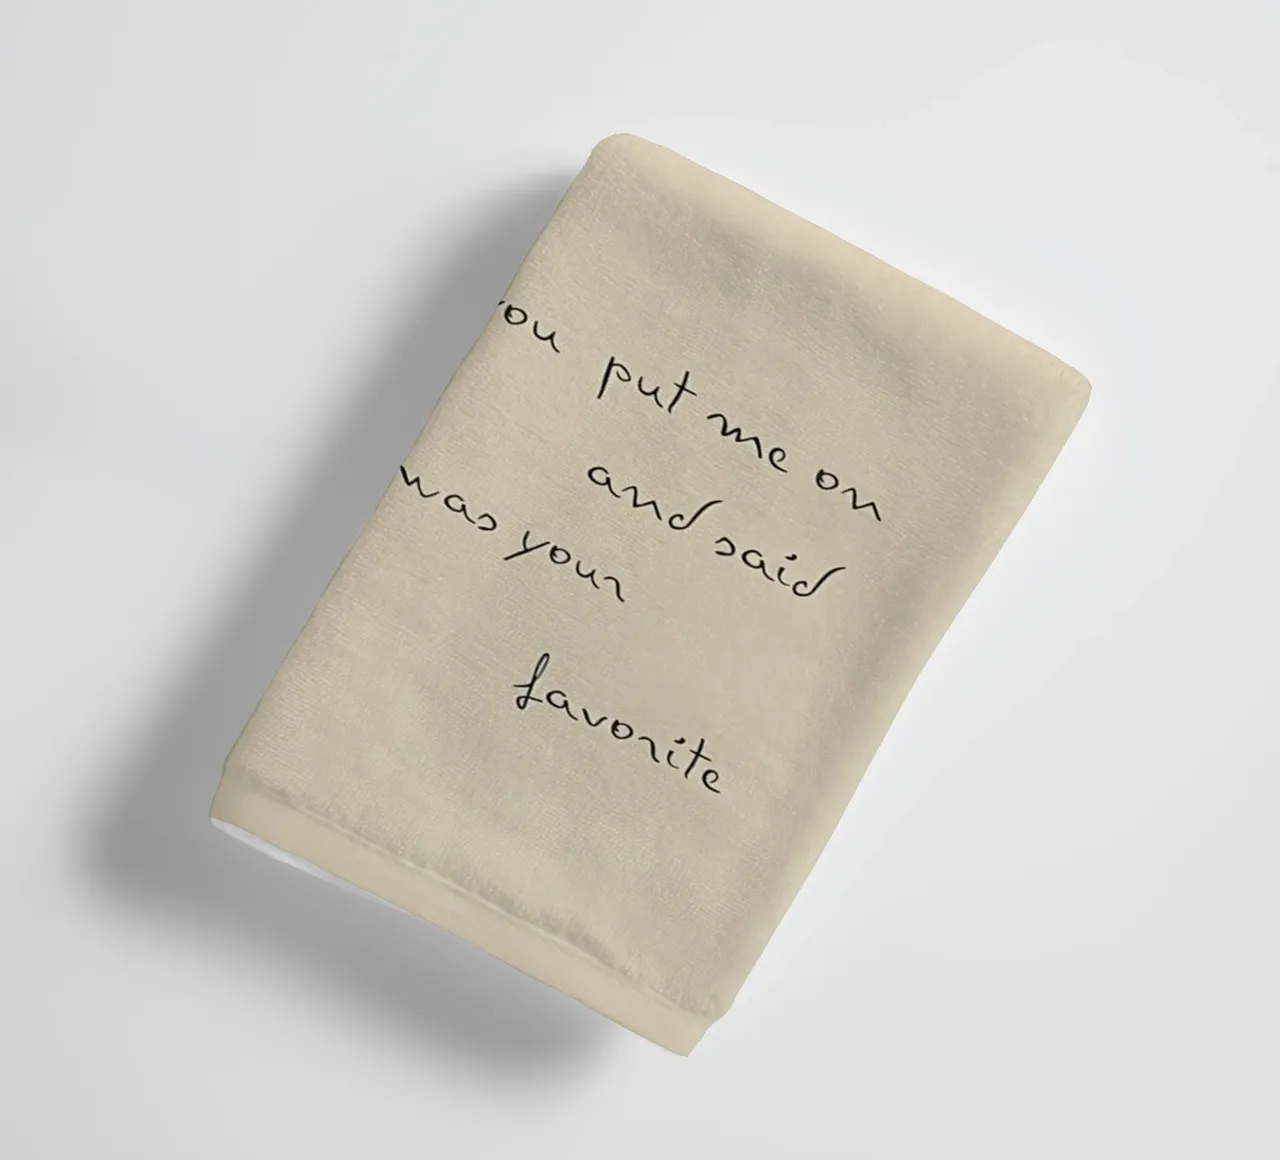 you put me on
and said
was your
favorite